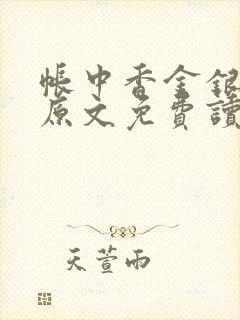 帳中香金銀
原文免費讀
天萱雨